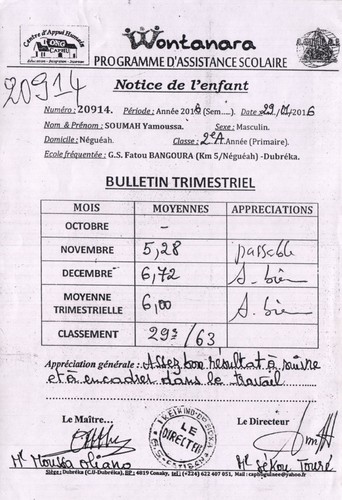 Centre d'Appui Humain
ONG
CAPHU
Wontanara
PROGRAMME D'ASSISTANCE SCOLAIRE
20914
Notice de l'enfant
Numéro : 20914. Période : Année 2016 (Sem.....). Date 29/01/2016
Nom & Prénom : SOUMAH Yamoussa. Sexe : Masculin.
Domicile : Néguéah. Classe : 2e A Année (Primaire).
Ecole fréquentée : G.S. Fatou BANGOURA (Km 5/Néguéah) -Dubréka.
BULLETIN TRIMESTRIEL
MOIS MOYENNES APPRECIATIONS
OCTOBRE -
NOVEMBRE 5,28 passable
DECEMBRE 6,72 A. bien
MOYENNE TRIMESTRIELLE 6,00 A. bien
CLASSEMENT 29e/63
Appréciation générale : Assez bon résultat à suivre
et à encadrer dans le travail
Le Maître... Le Directeur
LE DIRECTEUR
Mr Moussa Oliano Mr Sékou Touré
Siège : Dubréka (C.U-Dubréka), BP : 4819 Conakry, tel : (+224) 622 407 051, Mail : caphguinee@yahoo.fr